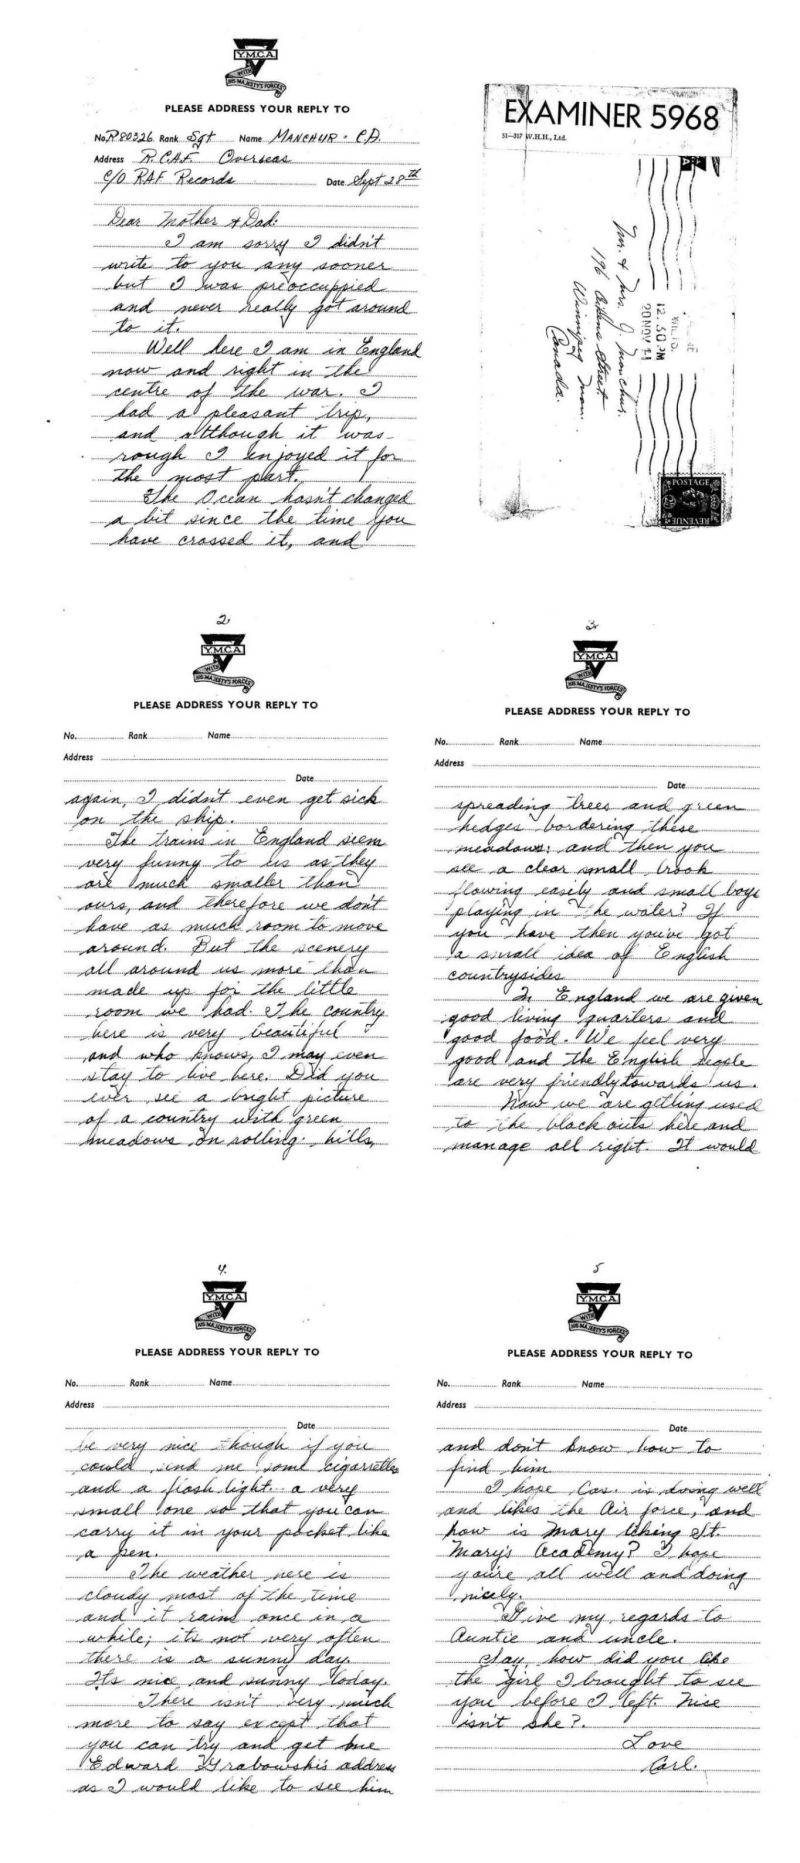 YMCA
WITH
HIS MAJESTY'S FORCES
PLEASE ADDRESS YOUR REPLY TO
No. R80326 Rank Sgt Name MANCHUR · C.A.
Address R.C.A.F. Overseas
C/O RAF Records Date Sept 28th
Dear Mother & Dad:
I am sorry I didn't
write to you any sooner
but I was preoccupied
and never really got around
to it.
Well here I am in England
now and right in the
centre of the war. I
had a pleasant trip,
and although it was
rough I enjoyed it for
the most part.
The Ocean hasn't changed
a bit since the time you
have crossed it, and
EXAMINER 5968
51—317 W.H.H., Ltd.
Mr. & Mrs. J. Manchur.
196 Street
Winnipeg Man.
Canada.
12.30 PM
20 NOV 41
POSTAGE
REVENUE
2,
YMCA
WITH
HIS MAJESTY'S FORCES
PLEASE ADDRESS YOUR REPLY TO
No. Rank Name
Address
Date
again, I didn't even get sick
on the ship.
The trains in England seem
very funny to us as they
are much smaller than
ours, and therefore we don't
have as much room to move
around. But the scenery
all around us more than
made up for the little
room we had. The country
here is very beautiful
and who knows, I may even
stay to live here. Did you
ever see a bright picture
of a country with green
meadows on rolling hills,
3.
YMCA
WITH
HIS MAJESTY'S FORCES
PLEASE ADDRESS YOUR REPLY TO
No. Rank Name
Address
Date
spreading trees and green
hedges bordering these
meadows; and then you
see a clear small brook
flowing easily and small boys
playing in the water? If
you have then you've got
a small idea of English
countrysides
In England we are given
good living quarters and
good food. We feel very
good and the English people
are very friendly towards us.
Now we are getting used
to the black outs here and
manage all right. It would
4.
YMCA
WITH
HIS MAJESTY'S FORCES
PLEASE ADDRESS YOUR REPLY TO
No. Rank Name
Address
Date
be very nice though if you
could send me some cigarettes
and a flash light. a very
small one so that you can
carry it in your pocket like
a pen.
The weather here is
cloudy most of the time
and it rains once in a
while; its not very often
there is a sunny day.
Its nice and sunny today.
There isn't very much
more to say except that
you can try and get me
Edward Grabowski's address
as I would like to see him
5
YMCA
WITH
HIS MAJESTY'S FORCES
PLEASE ADDRESS YOUR REPLY TO
No. Rank Name
Address
Date
and don't know how to
find him
I hope Cas. is doing well
and likes the Air force, and
how is Mary liking St.
Mary's Academy? I hope
you're all well and doing
nicely.
Give my regards to
Auntie and uncle.
Say, how did you like
the girl I brought to see
you before I left. Nice
isn't she?.
Love
Carl.